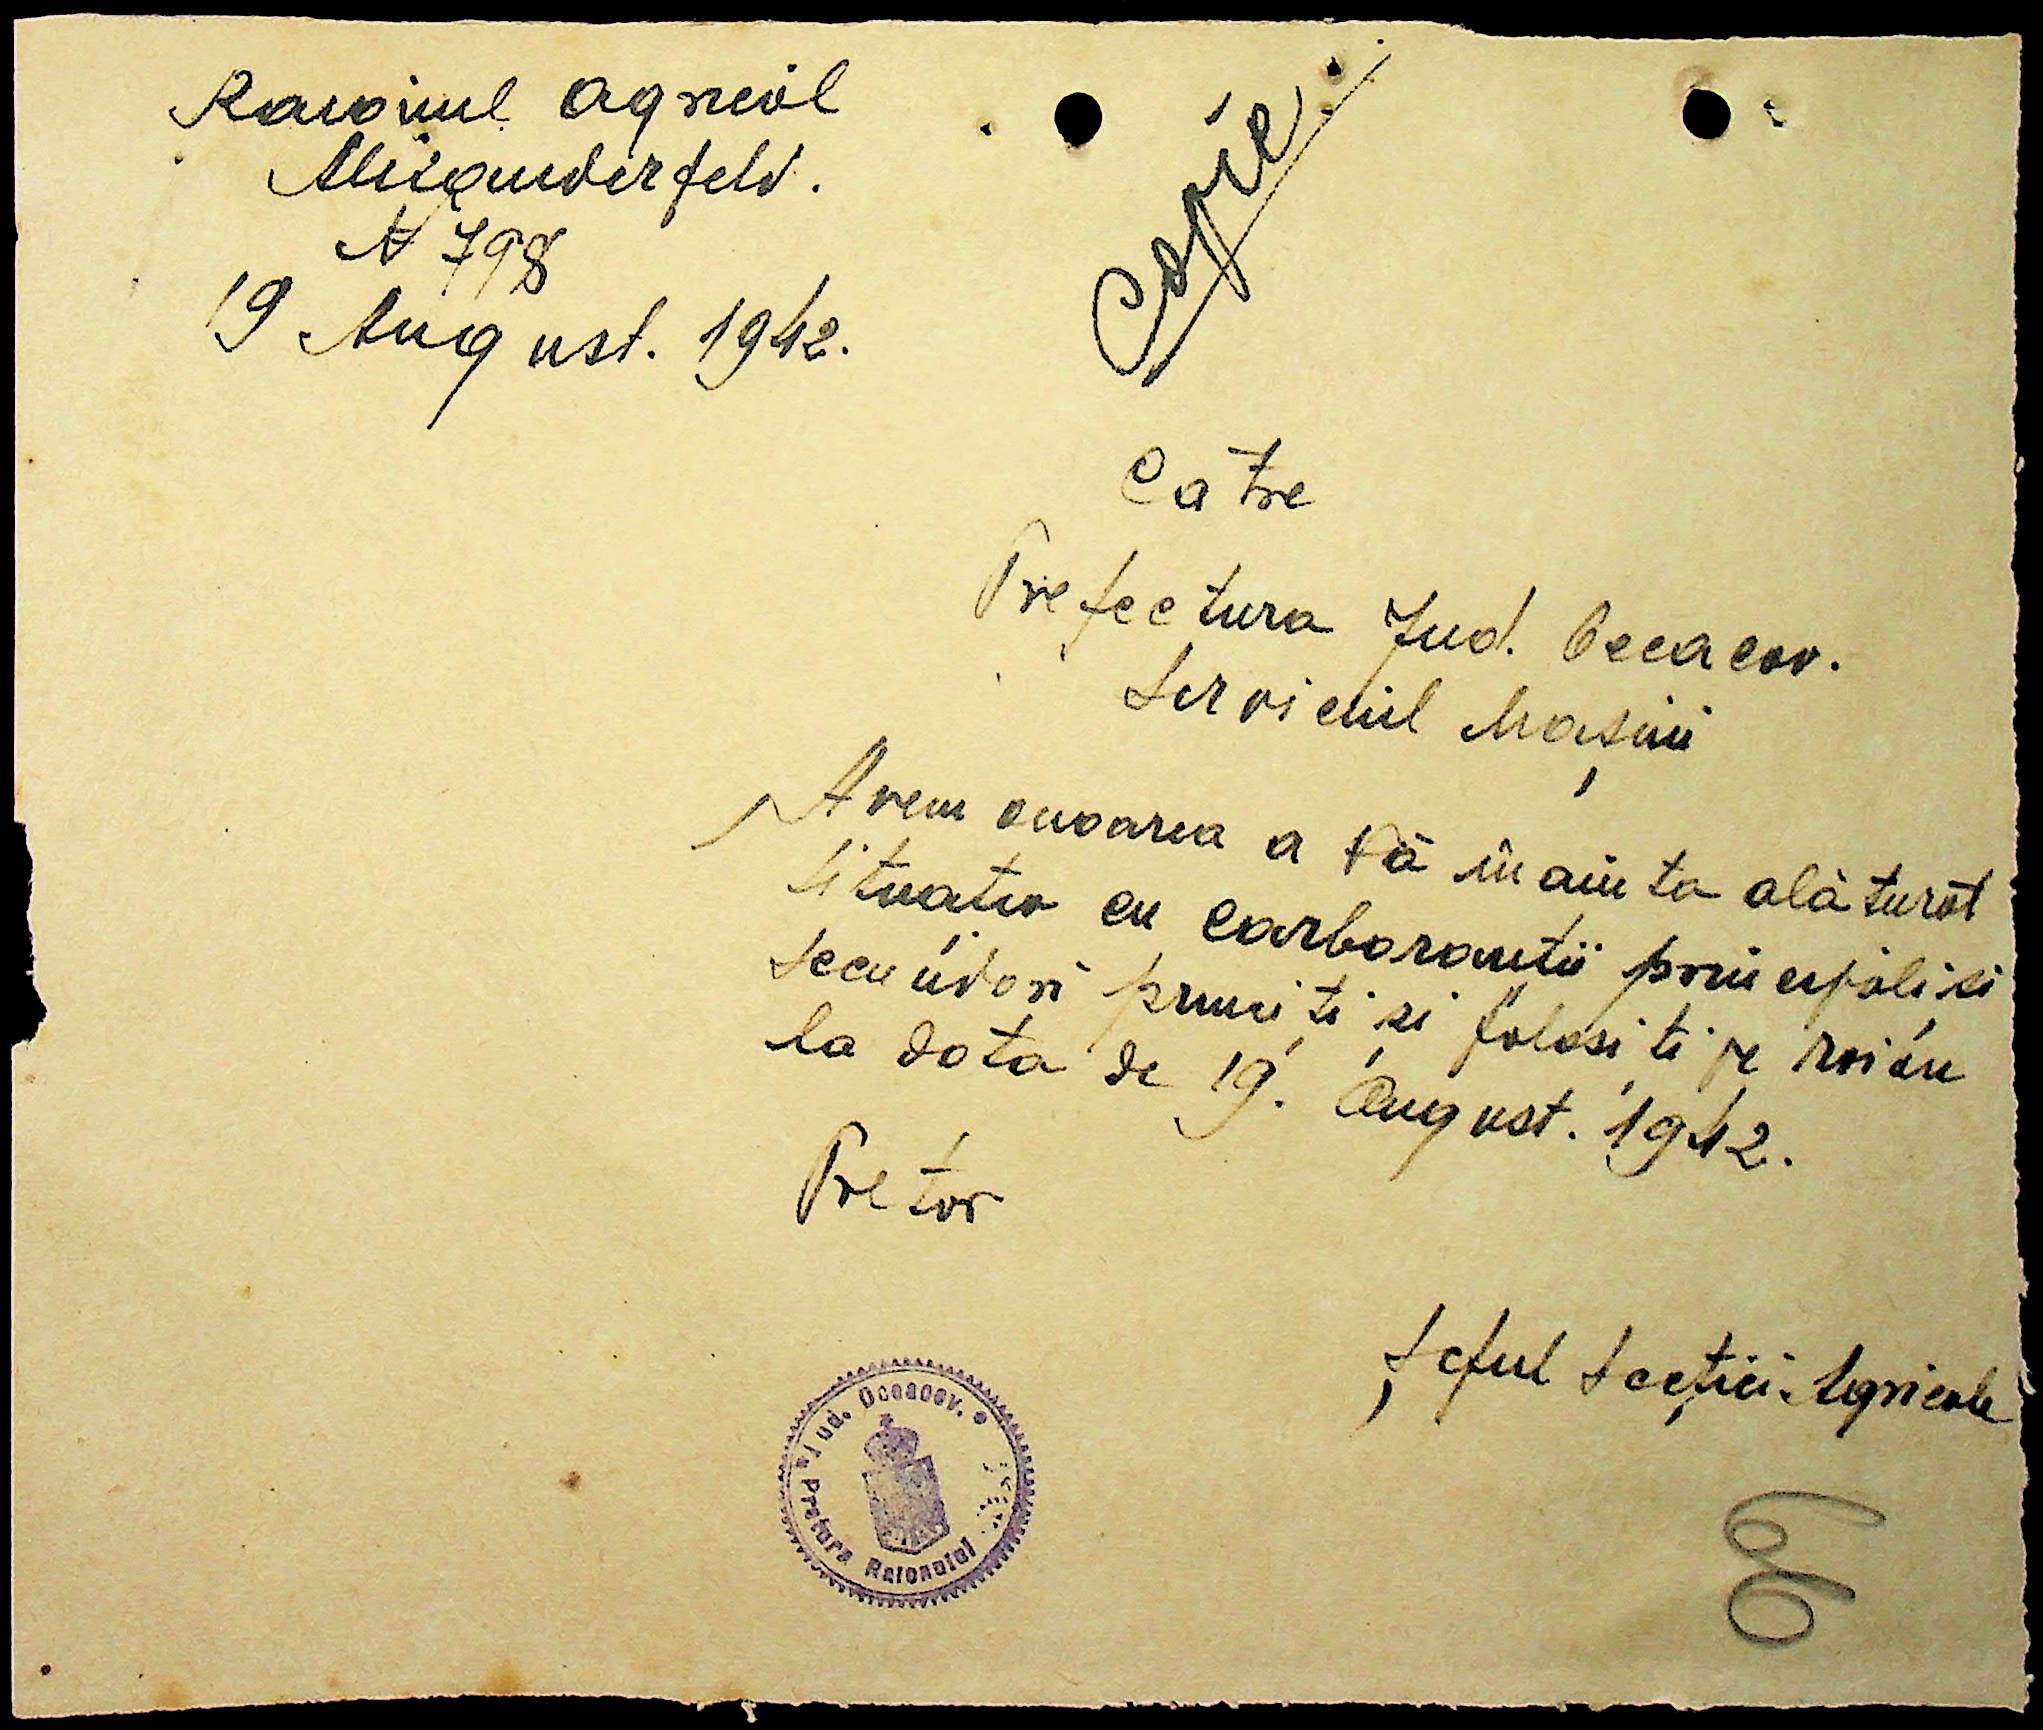 Raionul agricol
Alexanderfeld.
N 798
19 August. 1942.
Copie
Catre
Prefectura Jud. Oceacov.
Serviciul Mașini
Avem onoarea a Vă inainta alăturat
situatia cu carborantii principali si
secundari primiți si folosiți pe raion
la data de 19. August. 1942.
Pretor
Șeful Secției Agricole
Jud. Oceacov.
Pretura Raionului
66